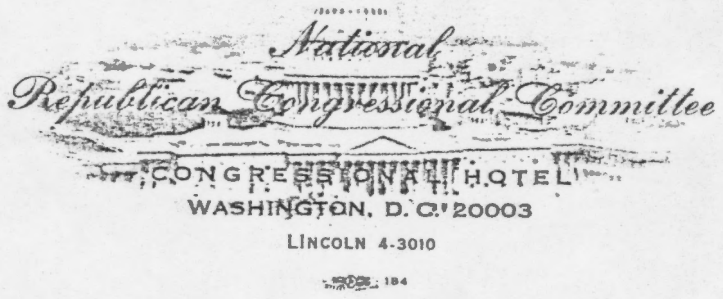 National
Republican Congressional Committee
CONGRESSIONAL HOTEL
WASHINGTON, D. C. 20003
LINCOLN 4-3010
184